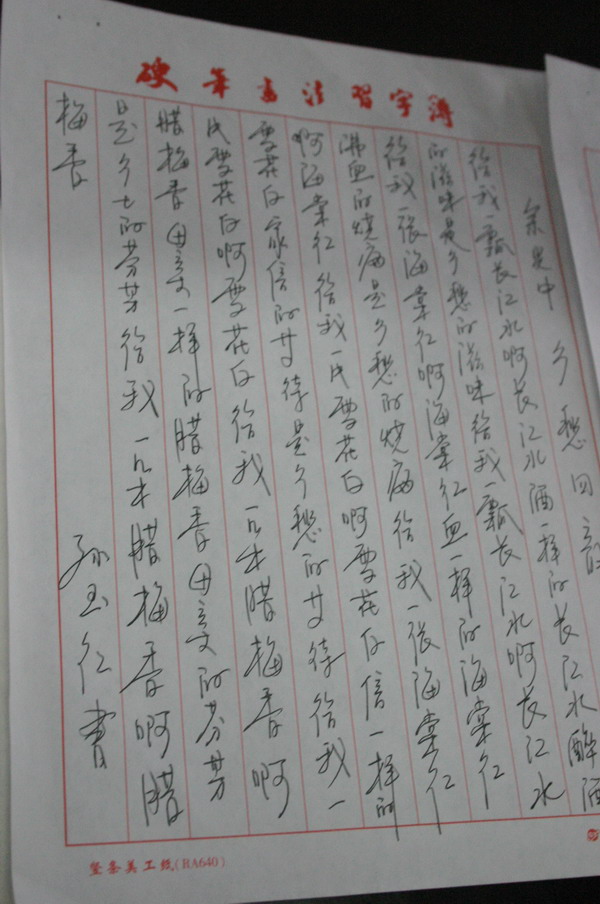 硬筆書法習字簿
余光中 乡愁四韵
给我一瓢长江水啊长江水酒一样的长江水醉酒
的滋味是乡愁的滋味给我一瓢长江水啊长江水
给我一张海棠红啊海棠红血一样的海棠红
沸血的烧痛是乡愁的烧痛给我一张海棠红
啊海棠红给我一片雪花白啊雪花白信一样的
雪花白家信的等待是乡愁的等待给我一
片雪花白啊雪花白给我一朵腊梅香啊
腊梅香母亲一样的腊梅香母亲的芬芳
是乡土的芬芳给我一朵腊梅香啊腊
梅香 孙玉红書
竖条美工纸(HA640)